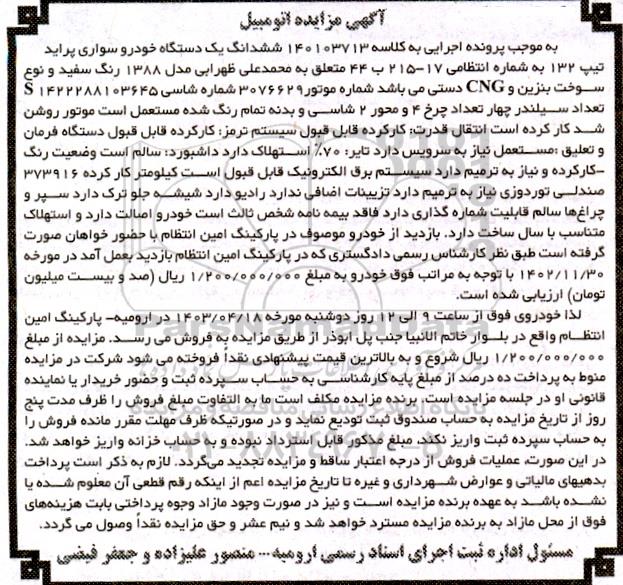 آگهی مزایده اتومبیل
به موجب پرونده اجرایی به کلاسه ۱۴۰۱۰۳۷۱۳ ششدانگ یک دستگاه خودرو سواری پراید
تیپ ۱۳۲ به شماره انتظامی ۱۷-۲۱۵ ب ۴۴ متعلق به محمدعلی ظهرابی مدل ۱۳۸۸ رنگ سفید و نوع
سوخت بنزین و CNG دستی می باشد شماره موتور ۳۰۷۶۶۲۹ شماره شاسی S ۱۴۲۲۲۸۸۱۰۳۶۴۵
تعداد سیلندر چهار تعداد چرخ ۴ و محور ۲ شاسی و بدنه تمام رنگ شده مستعمل است موتور روشن
شد کار کرده است انتقال قدرت: کارکرده قابل قبول سیستم ترمز: کارکرده قابل قبول دستگاه فرمان
و تعلیق :مستعمل نیاز به سرویس دارد تایر: ۷۰٪ استهلاک دارد داشبورد: سالم است وضعیت رنگ
-کارکرده و نیاز به ترمیم دارد سیستم برق الکترونیک قابل قبول است کیلومتر کار کرده ۳۷۳۹۱۶
صندلی تودوزی نیاز به ترمیم دارد تزیینات اضافی ندارد رادیو دارد شیشه جلو ترک دارد سپر و
چراغ‌ها سالم قابلیت شماره گذاری دارد فاقد بیمه نامه شخص ثالث است خودرو اصالت دارد و استهلاک
متناسب با سال ساخت دارد. بازدید از خودرو موصوف در پارکینگ امین انتظام با حضور خواهان صورت
گرفته است طبق نظر کارشناس رسمی دادگستری که در پارکینگ امین انتظام بازدید بعمل آمد در مورخه
۱۴۰۲/۱۱/۳۰ با توجه به مراتب فوق خودرو به مبلغ ۱/۲۰۰/۰۰۰/۰۰۰ ریال (صد و بیست میلیون
تومان) ارزیابی شده است.
لذا خودروی فوق از ساعت ۹ الی ۱۲ روز دوشنبه مورخه ۱۴۰۳/۰۴/۱۸ در ارومیه- پارکینگ امین
انتظام واقع در بلوار خاتم الانبیا جنب پل ابوذر از طریق مزایده به فروش می رسد. مزایده از مبلغ
۱/۲۰۰/۰۰۰/۰۰۰ ریال شروع و به بالاترین قیمت پیشنهادی نقداً فروخته می شود شرکت در مزایده
منوط به پرداخت ده درصد از مبلغ پایه کارشناسی به حساب سپرده ثبت و حضور خریدار یا نماینده
قانونی او در جلسه مزایده است. برنده مزایده مکلف است ما به التفاوت مبلغ فروش را ظرف مدت پنج
روز از تاریخ مزایده به حساب صندوق ثبت تودیع نماید و در صورتیکه ظرف مهلت مقرر مانده فروش را
به حساب سپرده ثبت واریز نکند، مبلغ مذکور قابل استرداد نبوده و به حساب خزانه واریز خواهد شد.
در این صورت، عملیات فروش از درجه اعتبار ساقط و مزایده تجدید می‌گردد. لازم به ذکر است پرداخت
بدهیهای مالیاتی و عوارض شهرداری و غیره تا تاریخ مزایده اعم از اینکه رقم قطعی آن معلوم شده یا
نشده باشد به عهده برنده مزایده است و نیز در صورت وجود مازاد وجوه پرداختی بابت هزینه‌های
فوق از محل مازاد به برنده مزایده مسترد خواهد شد و نیم عشر و حق مزایده نقداً وصول می گردد.
مسئول اداره ثبت اجرای اسناد رسمی ارومیه--- منصور علیزاده و جعفر فیضی
ParsNamadData
پایگاه اطلاع رسانی مناقصه و مزایده
۰۲۱-۸۸۳۴۹۶۷۰-۵